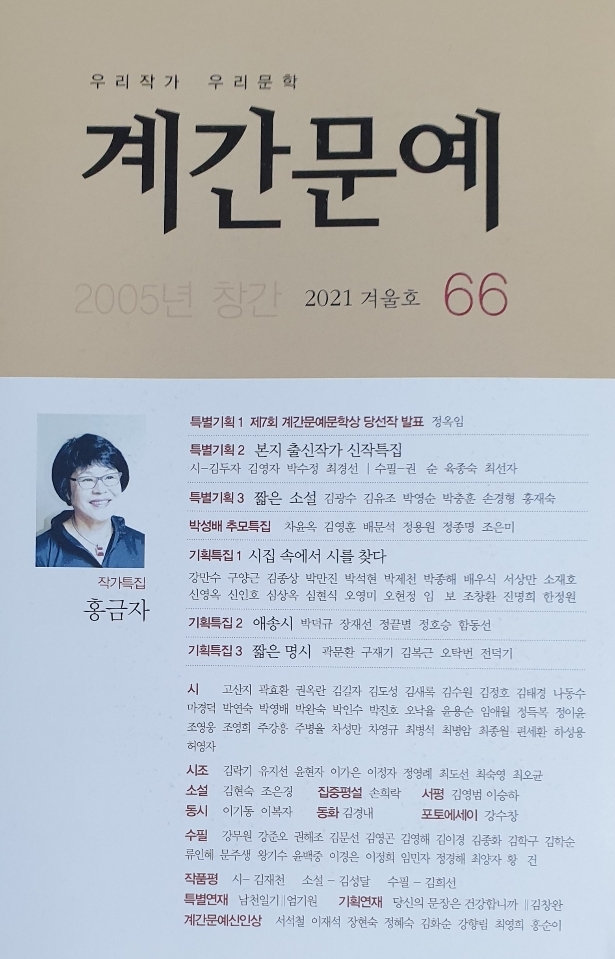 우리작가 우리문학
계간문예
2005년 창간 2021 겨울호 66
특별기획 1 제7회 계간문예문학상 당선작 발표 정옥임
특별기획 2 본지 출신작가 신작특집
시-김두자 김영자 박수정 최경선 | 수필-권 순 육종숙 최선자
특별기획 3 짧은 소설 김광수 김유조 박영순 박충훈 손경형 홍재숙
박성배 추모특집 차윤옥 김영훈 배문석 정용원 정종명 조은미
기획특집 1 시집 속에서 시를 찾다
강만수 구양근 김종상 박만진 박석현 박제천 박종해 배우식 서상만 소재호
신영옥 신인호 심상옥 심현식 오영미 오현정 임 보 조창환 진명희 한정원
작가특집
홍금자
기획특집 2 애송시 박덕규 장재선 정끝별 정호승 함동선
기획특집 3 짧은 명시 곽문환 구재기 김복근 오탁번 전덕기
시 고산지 곽효환 권옥란 김길자 김도성 김새록 김수원 김정호 김태경 나동수
마경덕 박연숙 박영배 박완숙 박인수 박진호 오낙율 윤용순 임애월 정득복 정이윤
조영웅 조영희 주강홍 주병율 차성만 차영규 최병석 최병암 최종월 편세환 하성용
허영자
시조 김락기 유지선 윤현자 이가은 이정자 정영례 최도선 최숙영 최오균
소설 김현숙 조은경 집중평설 손희락 서평 김영범 이승하
동시 이기동 이복자 동화 김경내 포토에세이 강수창
수필 강무원 강준오 권해조 김문선 김영곤 김영해 김이경 김종화 김학구 김학순
류인혜 문주생 왕기수 윤백중 이경은 이정희 임민자 정경해 최양자 황 건
작품평 시 - 김재천 소설 - 김성달 수필 - 김희선
특별연재 남천일기 ‖ 엄기원 기획연재 당신의 문장은 건강합니까 ‖ 김창완
계간문예신인상 서석철 이재석 장현숙 정혜숙 김화순 강향림 최영희 홍순이